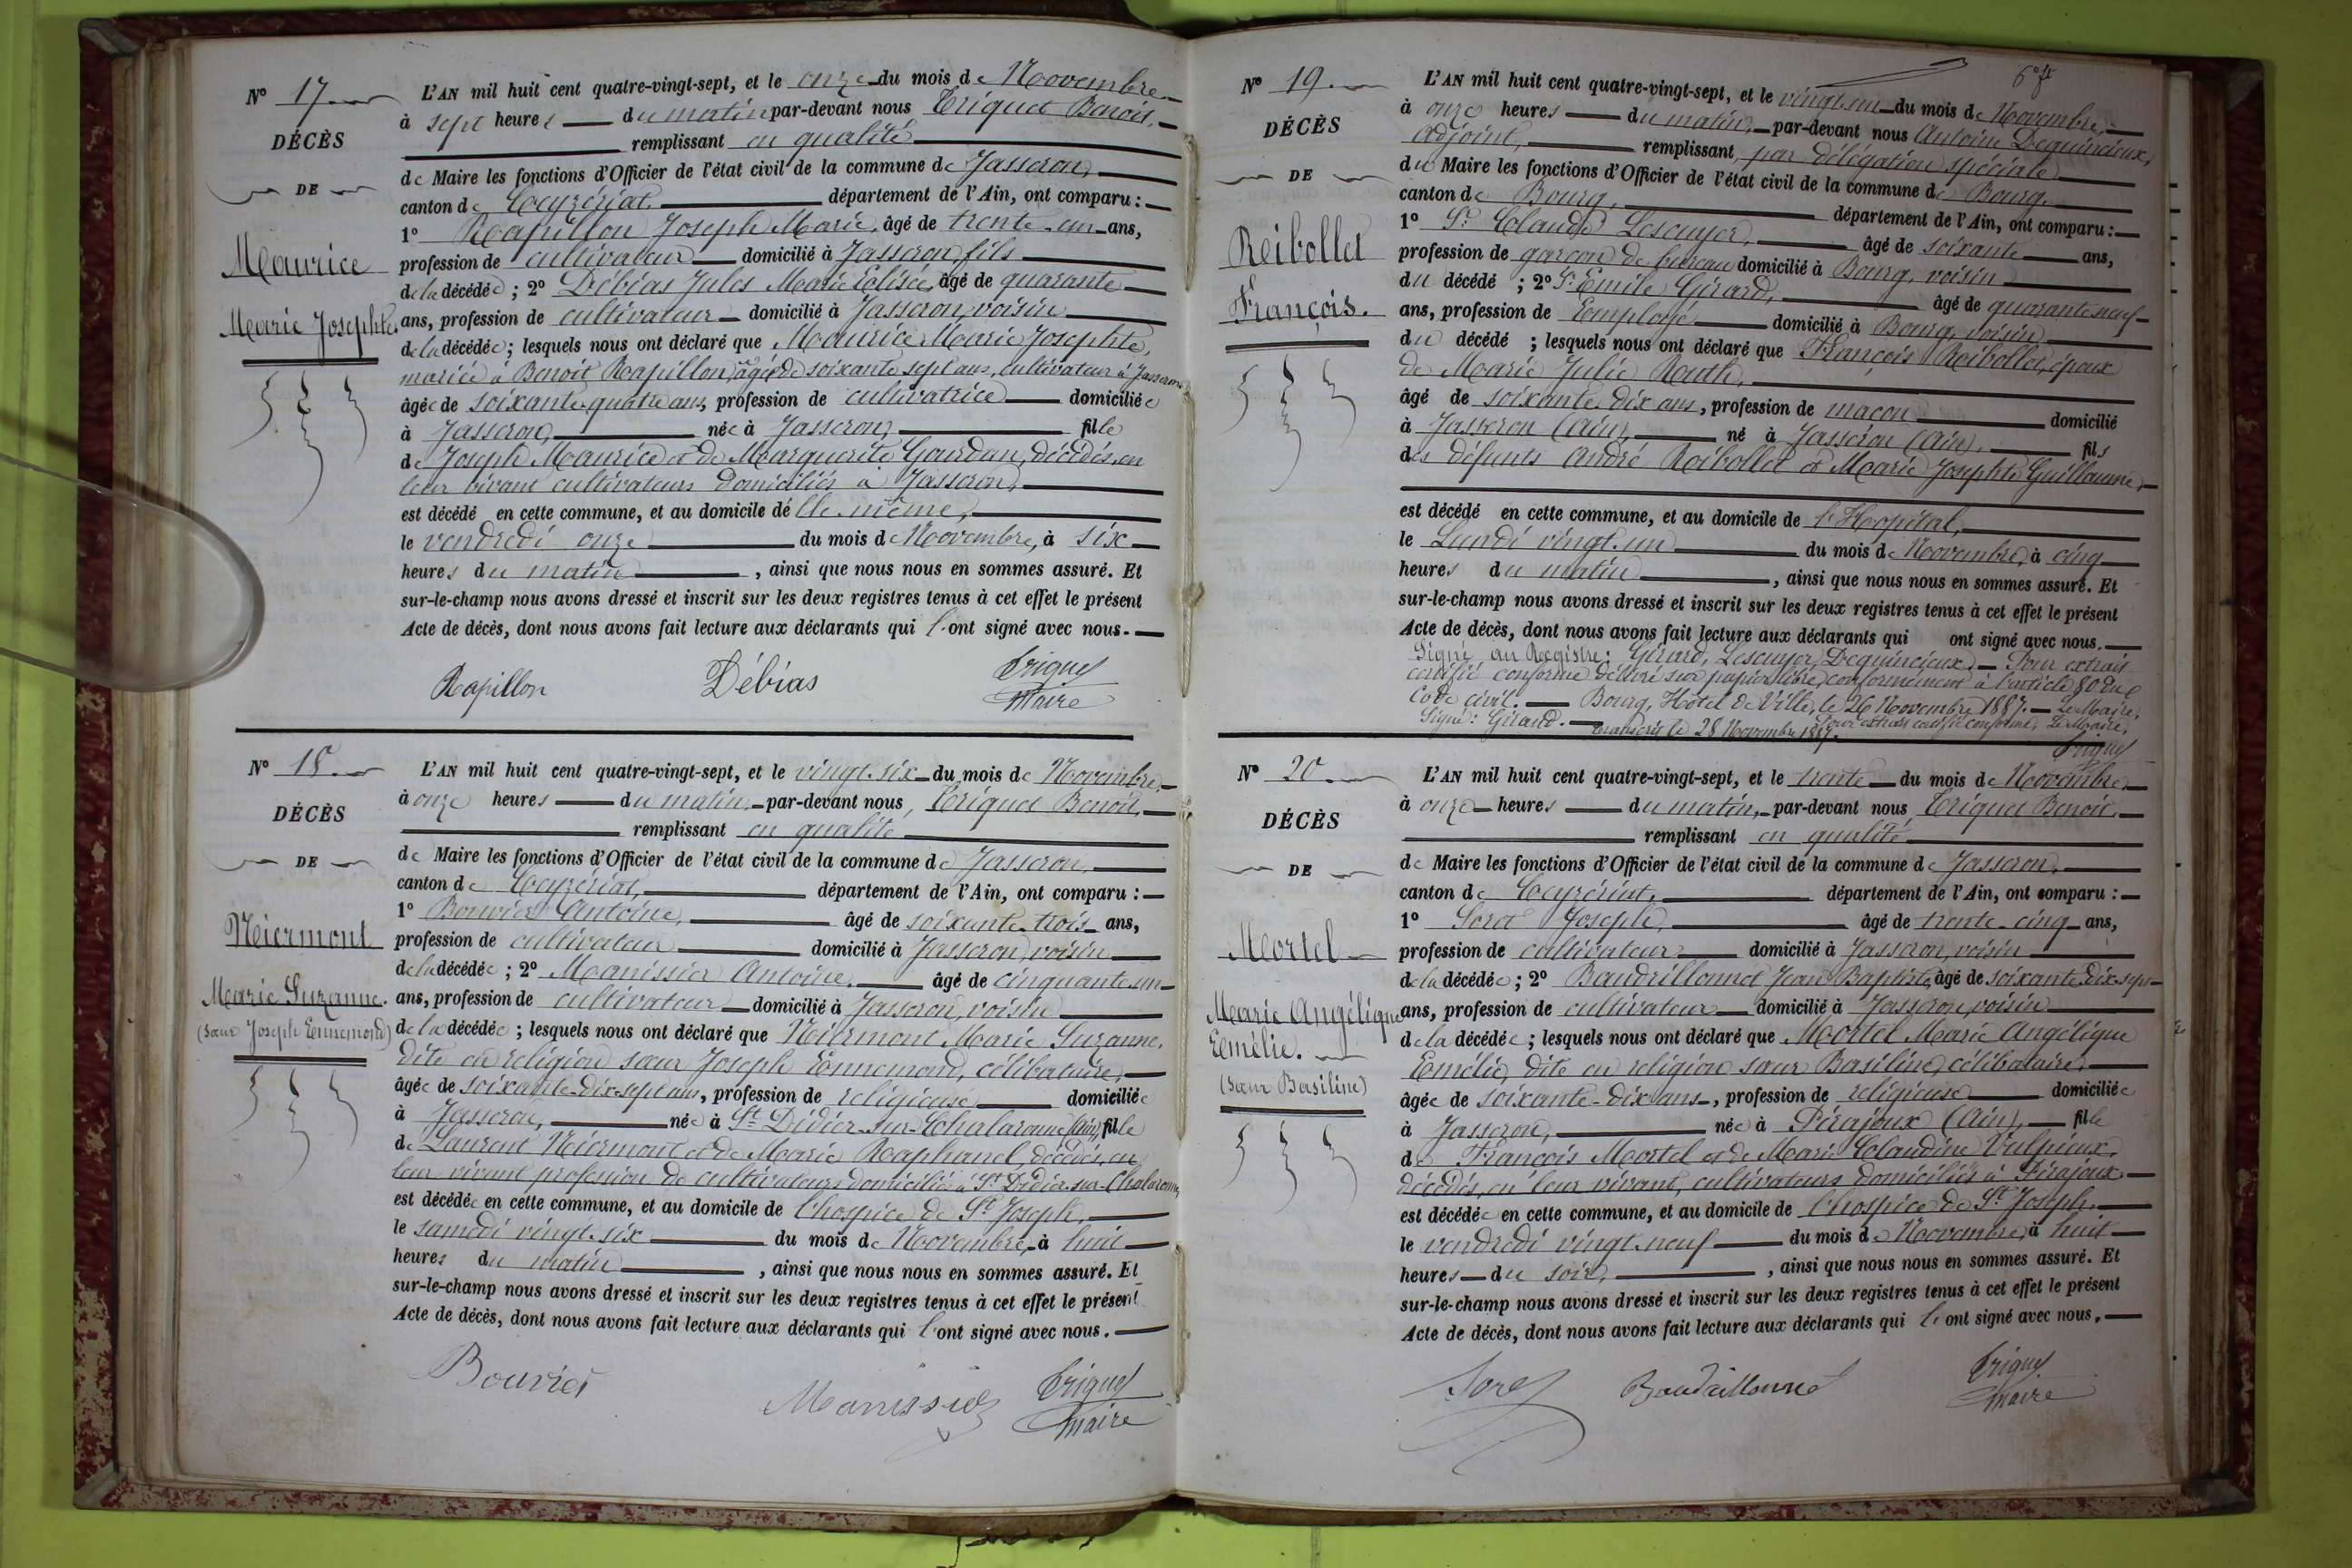 N° 17
DÉCÈS
DE
Maurice
Marie Josephte
L'AN mil huit cent quatre-vingt-sept, et le onze du mois de Novembre
à sept heures du matin par-devant nous Triquet Benoit,
remplissant en qualité
de Maire les fonctions d'Officier de l'état civil de la commune de Jasseron,
canton de Ceyzériat département de l'Ain, ont comparu :
1° Rapillon Joseph Marie, âgé de trente-un ans,
profession de cultivateur domicilié à Jasseron, fils
de la décédée ; 2° Débias Jules Marie Elisée, âgé de quarante
ans, profession de cultivateur domicilié à Jasseron, voisin
de la décédée ; lesquels nous ont déclaré que Maurice Marie Josephte,
mariée à Benoit Rapillon, âgé de soixante sept ans, cultivateur à Jasseron
âgée de soixante-quatre ans, profession de cultivatrice domiciliée
à Jasseron, née à Jasseron, fille
de Joseph Maurice et de Marguerite Gourdan, décédés, en
leur vivant cultivateurs domiciliés à Jasseron,
est décédé en cette commune, et au domicile d'elle même,
le vendredi onze du mois de Novembre, à six
heures du matin , ainsi que nous nous en sommes assuré. Et
sur-le-champ nous avons dressé et inscrit sur les deux registres tenus à cet effet le présent
Acte de décès, dont nous avons fait lecture aux déclarants qui l'ont signé avec nous.
Rapillon Débias Triquet
Maire
N° 18
DÉCÈS
DE
Niermont
Marie Suzanne.
(sœur Joseph Ennemond)
L'AN mil huit cent quatre-vingt-sept, et le vingt-six du mois de Novembre,
à onze heures du matin, par-devant nous, Triquet Benoit,
remplissant en qualité
de Maire les fonctions d'Officier de l'état civil de la commune de Jasseron,
canton de Ceyzériat, département de l'Ain, ont comparu :
1° Bouvier Antoine, âgé de soixante-trois ans,
profession de cultivateur domicilié à Jasseron, voisin
de la décédée ; 2° Manissier Antoine, âgé de cinquante-un
ans, profession de cultivateur domicilié à Jasseron, voisin
de la décédée ; lesquels nous ont déclaré que Niermont Marie Suzanne,
dite en religion sœur Joseph Ennemond, célibataire,
âgée de soixante-dix-sept ans, profession de religieuse domiciliée
à Jasseron, née à St Didier-sur-Chalaronne (Ain), fille
de Laurent Niermont et de Marie Raphanel, décédés, en
leur vivant profession de cultivateurs domiciliés à St Didier-sur-Chalaronne,
est décédée en cette commune, et au domicile de l'hospice de St Joseph,
le samedi vingt-six du mois de Novembre, à huit
heures du matin , ainsi que nous nous en sommes assuré. Et
sur-le-champ nous avons dressé et inscrit sur les deux registres tenus à cet effet le présent
Acte de décès, dont nous avons fait lecture aux déclarants qui l'ont signé avec nous.
Bouvier Manissier Triquet
Maire
N° 19
DÉCÈS
DE
Reibollet
François.
L'AN mil huit cent quatre-vingt-sept, et le vingt-un du mois de Novembre,
à onze heures du matin, par-devant nous Antoine Dequincieux,
adjoint, remplissant par délégation spéciale
du Maire les fonctions d'Officier de l'état civil de la commune de Bourg,
canton de Bourg, département de l'Ain, ont comparu :
1° Sr Claude Lescuyer, âgé de soixante ans,
profession de garçon de bureau domicilié à Bourg, voisin
du décédé ; 2° Sr Emile Girard, âgé de quarante neuf
ans, profession de Employé domicilié à Bourg, voisin
du décédé ; lesquels nous ont déclaré que François Reibollet, époux
de Marie Julie Ruth,
âgé de soixante dix ans, profession de maçon domicilié
à Jasseron (Ain), né à Jasseron (Ain), fils
des défunts André Reibollet et Marie Josephte Guillaume,
est décédé en cette commune, et au domicile de l'Hopital,
le Lundi vingt-un du mois de Novembre, à cinq
heures du matin , ainsi que nous nous en sommes assuré. Et
sur-le-champ nous avons dressé et inscrit sur les deux registres tenus à cet effet le présent
Acte de décès, dont nous avons fait lecture aux déclarants qui ont signé avec nous.
Signé au Registre : Girard, Lescuyer, Dequincieux. — Pour extrait
certifié conforme délivré sur papier libre, conformément à l'article 80 du
Code civil. — Bourg, Hôtel de Ville, le 26 Novembre 1887. — Le Maire,
Signé : Girard. — transcrit le 28 Novembre 1887. Pour extrait certifié conforme, Le Maire,
Triquet
N° 20
DÉCÈS
DE
Mortel
Marie Angélique
Emélie.
(Sœur Basiline)
L'AN mil huit cent quatre-vingt-sept, et le trente du mois de Novembre,
à onze heures du matin, par-devant nous, Triquet Benoit,
remplissant en qualité
de Maire les fonctions d'Officier de l'état civil de la commune de Jasseron,
canton de Ceyzériat, département de l'Ain, ont comparu :
1° Soret Joseph, âgé de trente-cinq ans,
profession de cultivateur domicilié à Jasseron, voisin
de la décédée ; 2° Baudrillonnet Jean Baptiste, âgé de soixante-dix-sept
ans, profession de cultivateur domicilié à Jasseron, voisin
de la décédée ; lesquels nous ont déclaré que Mortel Marie Angélique
Emélie, dite en religion sœur Basiline, célibataire,
âgée de soixante-dix ans, profession de religieuse domiciliée
à Jasseron, née à Pirajoux (Ain), fille
de François Mortel et de Marie Claudine Vulpieux,
décédés, en leur vivant, cultivateurs domiciliés à Pirajoux.
est décédée en cette commune, et au domicile de l'hospice de St Joseph.
le vendredi vingt-neuf du mois de Novembre, à huit
heures du soir, , ainsi que nous nous en sommes assuré. Et
sur-le-champ nous avons dressé et inscrit sur les deux registres tenus à cet effet le présent
Acte de décès, dont nous avons fait lecture aux déclarants qui l'ont signé avec nous,
Soret Baudrillonnet Triquet
Maire